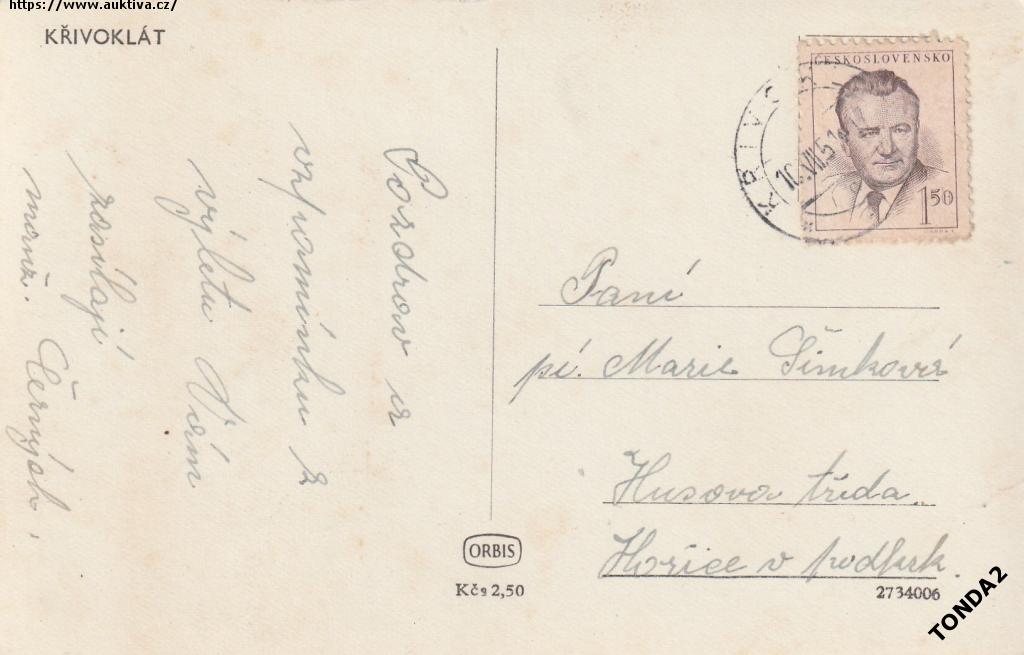 https://www.auktiva.cz/
KŘIVOKLÁT
Pozdrav a
vzpomínku z
výletu Vám
zasílají
manž. Černých.
ČESKOSLOVENSKO
1 50
KŘIVO
10.VII.51
Paní
pí. Marie Šimková
Husova třída.
Hořice v podkrk.
ORBIS
Kčs 2,50
2734006
TONDA2